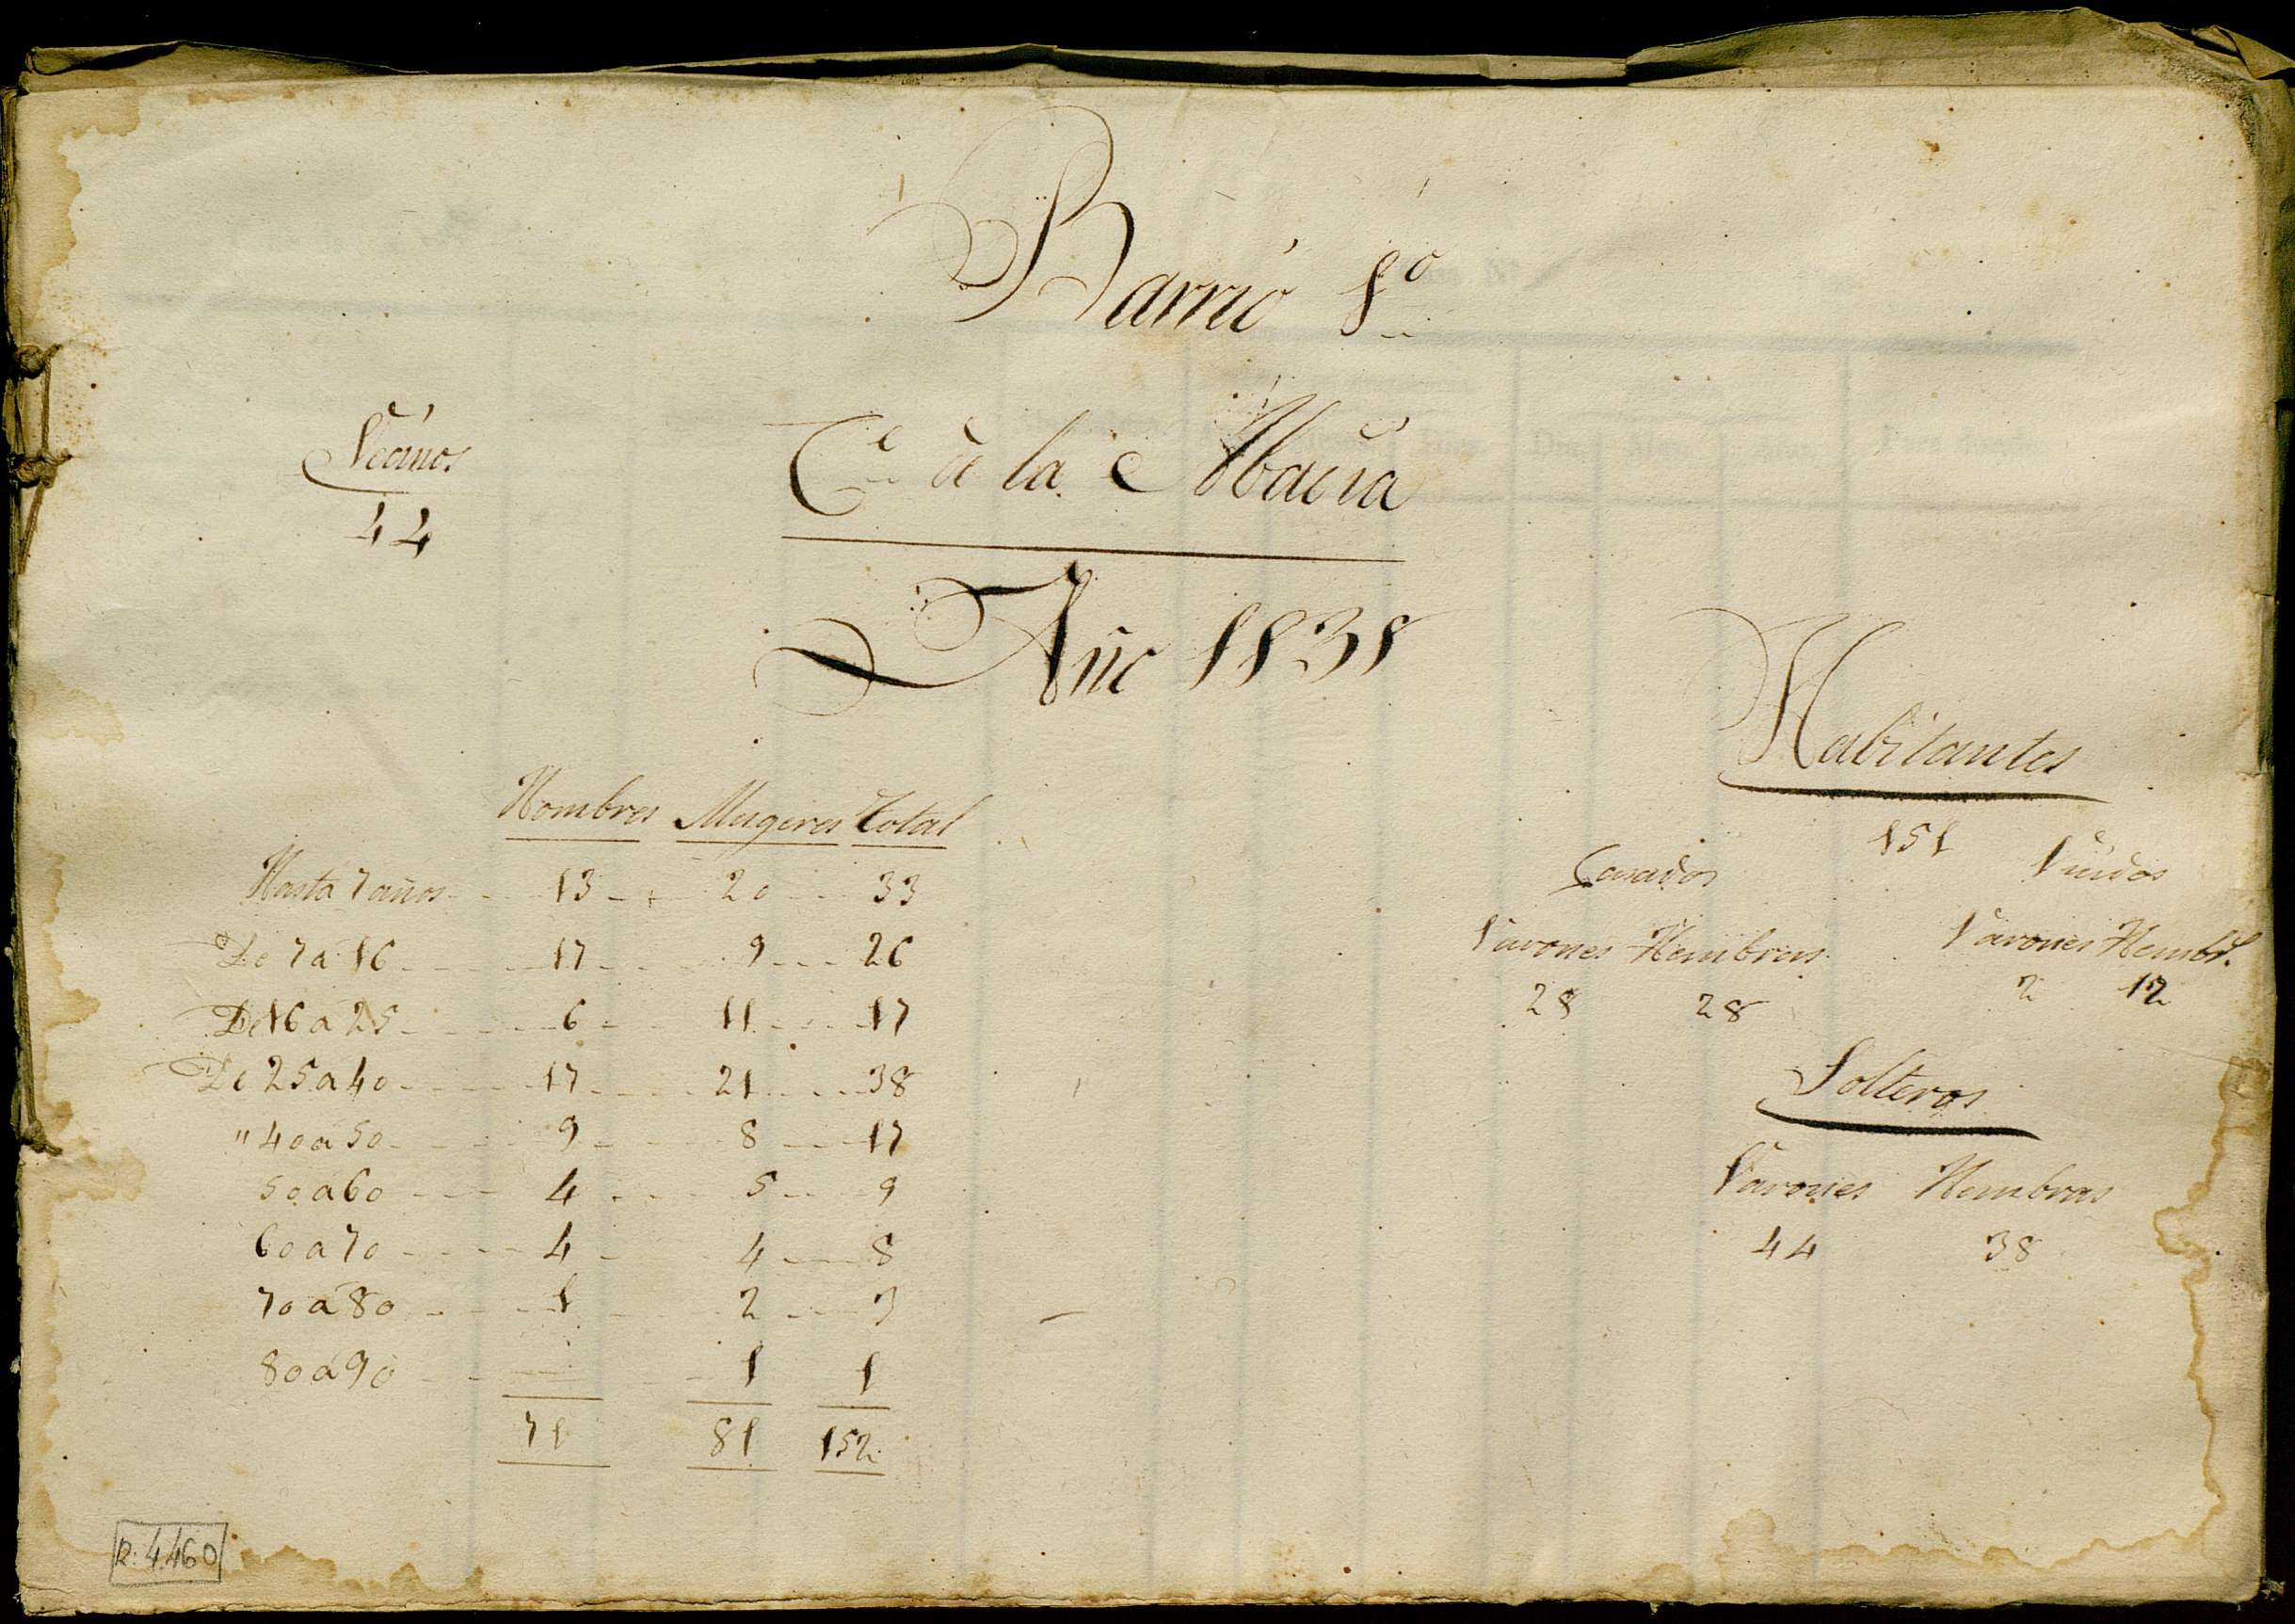 Barrio 1º
Cᵉ à la Abacia
Vecinos
44
Año 1831
Habitantes
151
Hombres Mugeres Total
Hasta 7 años 13 20 33
De 7 a 16 17 9 26
De 16 a 25 6 11 17
De 25 a 40 17 21 38
" 40 a 50 9 8 17
50 a 60 4 5 9
60 a 70 4 4 8
70 a 80 1 2 3
80 a 90 1 1
71 81 152
Casados Viudos
Varones Hembras Varones Hembˢ.
28 28 2 12
Solteros
Varones Hembras
44 38
R: 4.460